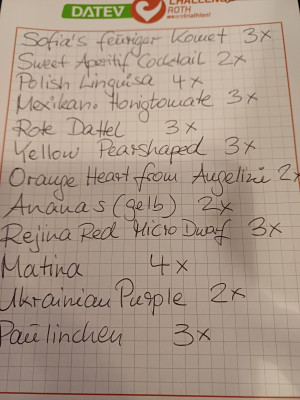 DATEV
CHALLENGE
ROTH
#wearetriathlon!
Sofia's feuriger Komet 3x
Sweet Aperitif Cocktail 2x
Polish Linguisa 4x
Mexikan. Honigtomate 3x
Rote Dattel 3x
Yellow Pearshaped 3x
Orange Heart from Angelini 2x
Ananas (gelb) 2x
Rejina Red Micro Dwarf 3x
Matina 4x
Ukrainian Purple 2x
Paulinchen 3x